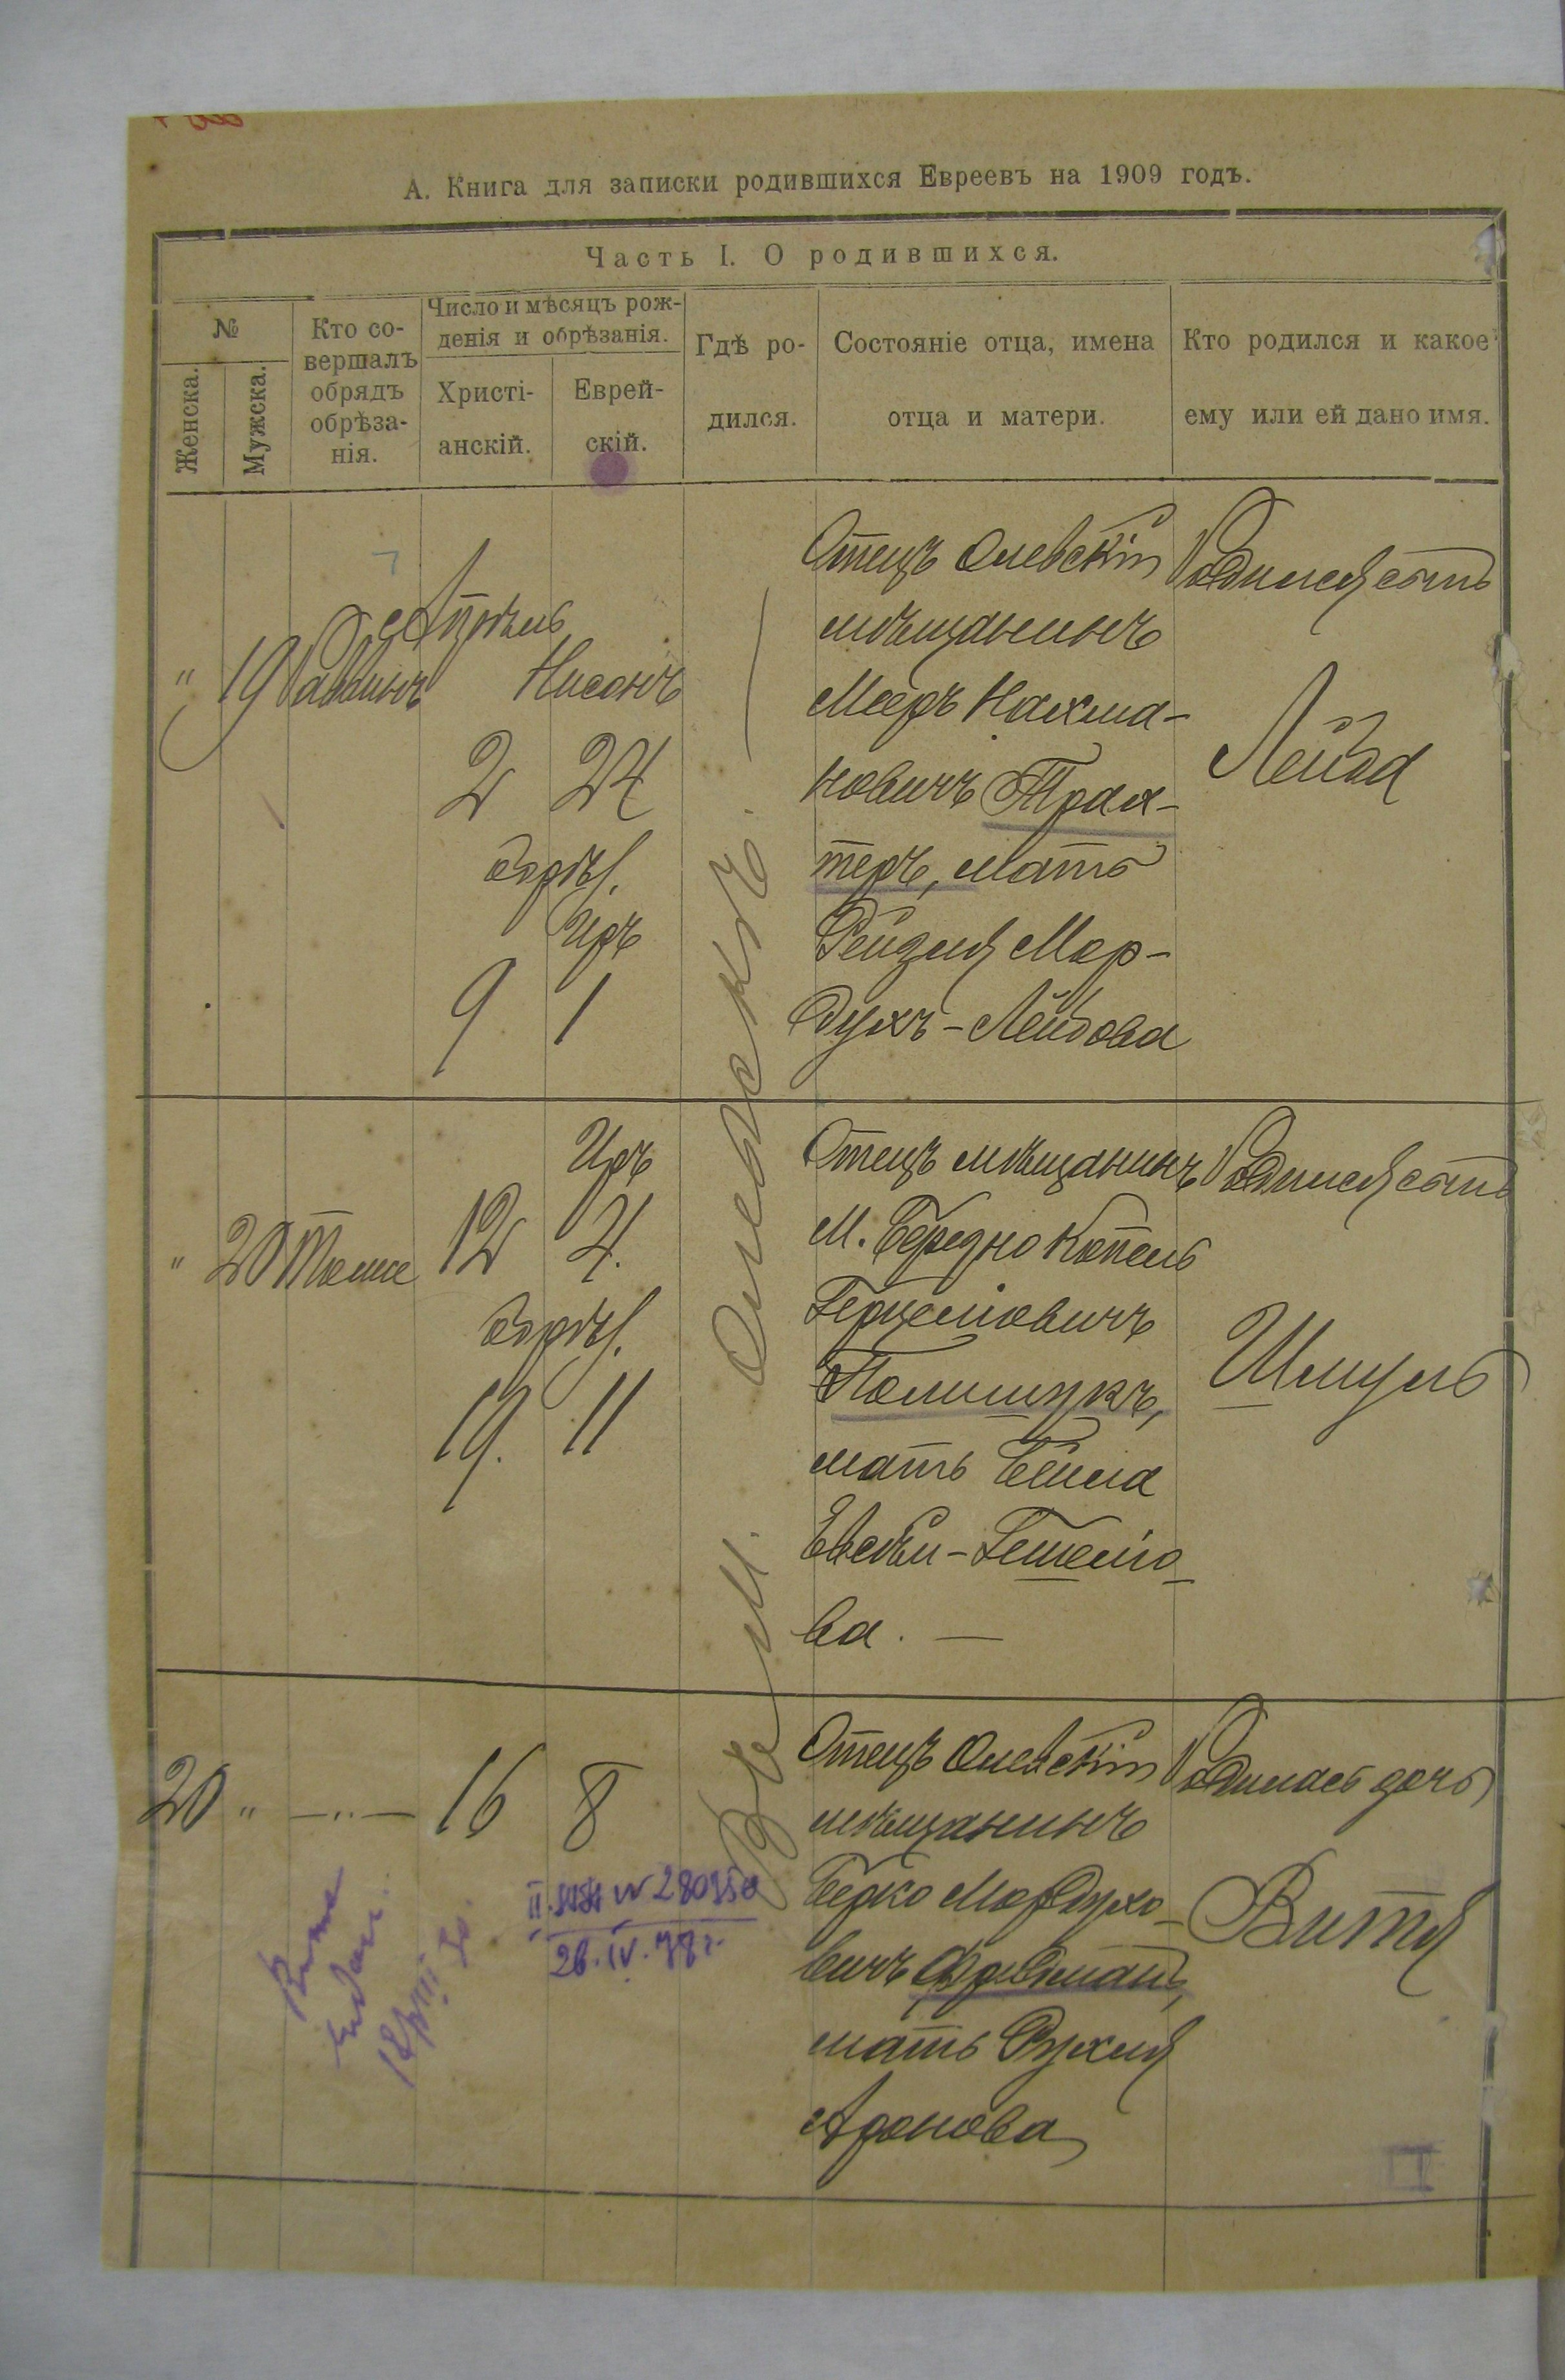 А. Книга для записки родившихся Евреевъ на 1909 годъ.
Часть I. О родившихся.
№
Женска.
Мужска.
Кто со-
вершалъ
обрядъ
обрѣза-
нія.
Число и мѣсяцъ рож-
денія и обрѣзанія.
Христі-
анскій.
Еврей-
скій.
Гдѣ ро-
дился.
Состояніе отца, имена
отца и матери.
Кто родился и какое
ему или ей дано имя.
" 19 Раввинъ
Апрѣль
Нисонъ
2 24
обрѣз.
Иръ
9 1
Въ м. Олевскѣ.
Отецъ Олевскій
мѣщанинъ
Мееръ Нахма-
новичъ Трах-
теръ, мать
Рейзля Мор-
духъ-Лейбова
Родился сынъ
Лейба
" 20 Тоже
Иръ
12 4.
обрѣз.
19. 11
Отецъ мѣщанинъ
М. Березно Копель
Герцеліовичъ
Полищукъ,
мать Бейла
Евсѣй-Гешеліо-
ва. —
Родился сынъ
Шмуль
20 " —"— 16 8
Отецъ Олевскій
мѣщанинъ
Берко Мордухо-
вичъ Фридманъ,
мать Рухля
Аронова
Родилась дочь
Витя
26.IV.